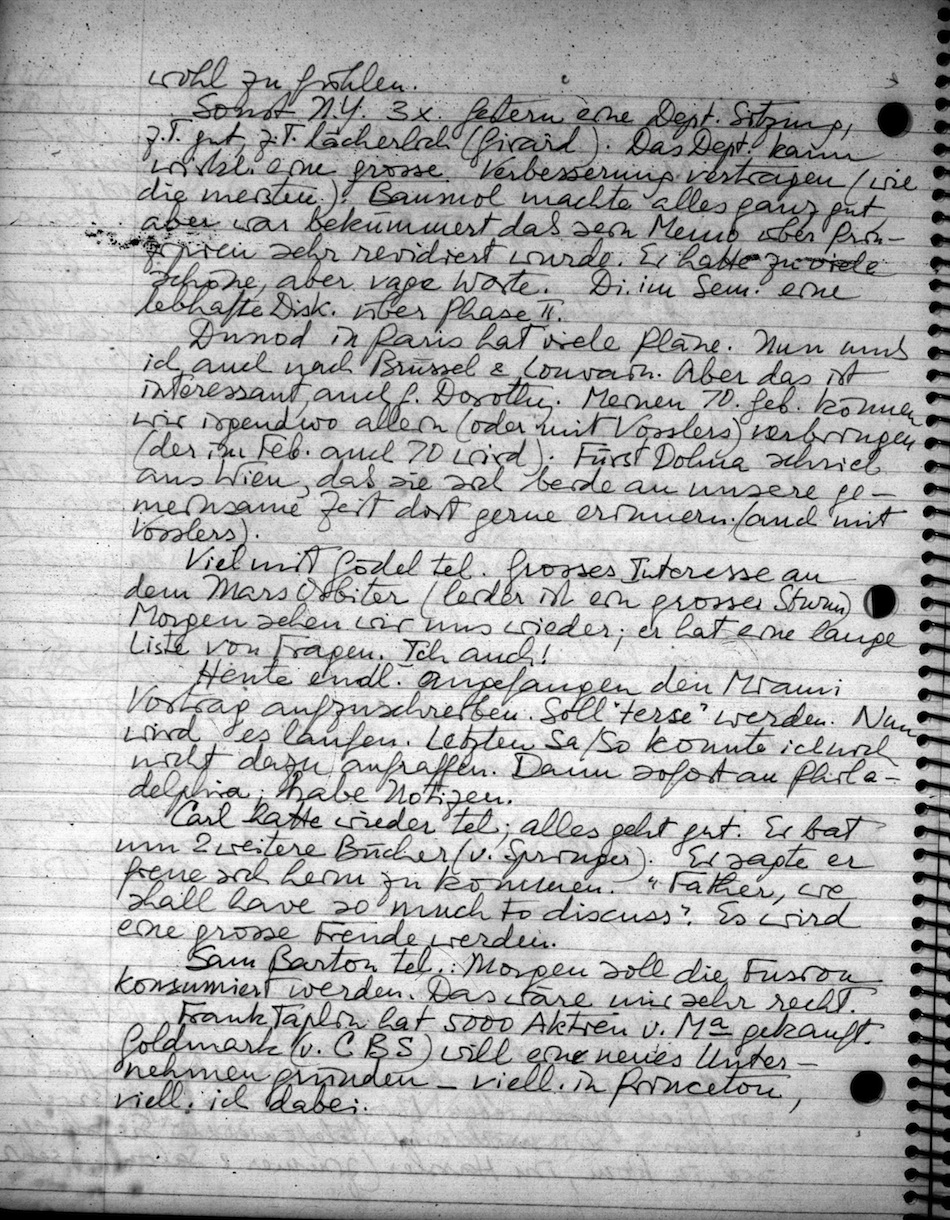 wohl zu fühlen.
Sonst N.Y. 3x. Gestern eine Dept. Sitzung,
z.T. gut, z.T. lächerlich (Girard). Das Dept. kann
wirkl. eine grosse Verbesserung vertragen (wie
die meisten). Baumol machte alles ganz gut,
aber war bekümmert das sein Memo über Prin-
zipien sehr revidiert wurde. Er hatte zu viele
schöne, aber vage Worte. Di. im Sem. eine
lebhafte Disk. über Phase II.
Dunod in Paris hat viele Pläne. Nun muss
ich auch nach Brüssel & Louvain. Aber das ist
interessant, auch f. Dorothy. Meinen 70. Geb. können
wir irgendwo allein (oder mit Vosslers) verbringen
(der im Feb. auch 70 wird). Fürst Dohna schrieb
aus Wien, das sie sich beide an unsere ge-
meinsame Zeit dort gerne erinnern. (auch mit
Vosslers).
Viel mit Gödel tel. Grosses Interesse an
dem Mars Orbiter (leider ist ein grosser Sturm)
Morgen sehen wir uns wieder; er hat eine lange
Liste von Fragen. Ich auch!
Heute endl. angefangen den Miami
Vortrag aufzuschreiben. Soll "terse" werden. Nun
wird es laufen. Letzten Sa/So konnte ich mich
nicht dazu aufraffen. Dann sofort an Phila-
delphia; habe Notizen.
Carl hatte wieder tel; alles geht gut. Er bat
um 2 weitere Bücher (v. Springer). Er sagte er
freue sich heim zu kommen. "Father, we
shall have so much to discuss". Es wird
eine grosse Freude werden.
Sam Barton tel.: Morgen soll die Fusion
konsumiert werden. Das wäre mir sehr recht.
Frank Taplin hat 5000 Aktien v. Ma gekauft.
Goldmark (v. CBS) will ein neues Unter-
nehmen gründen – viell. in Princeton,
viell. ich dabei.